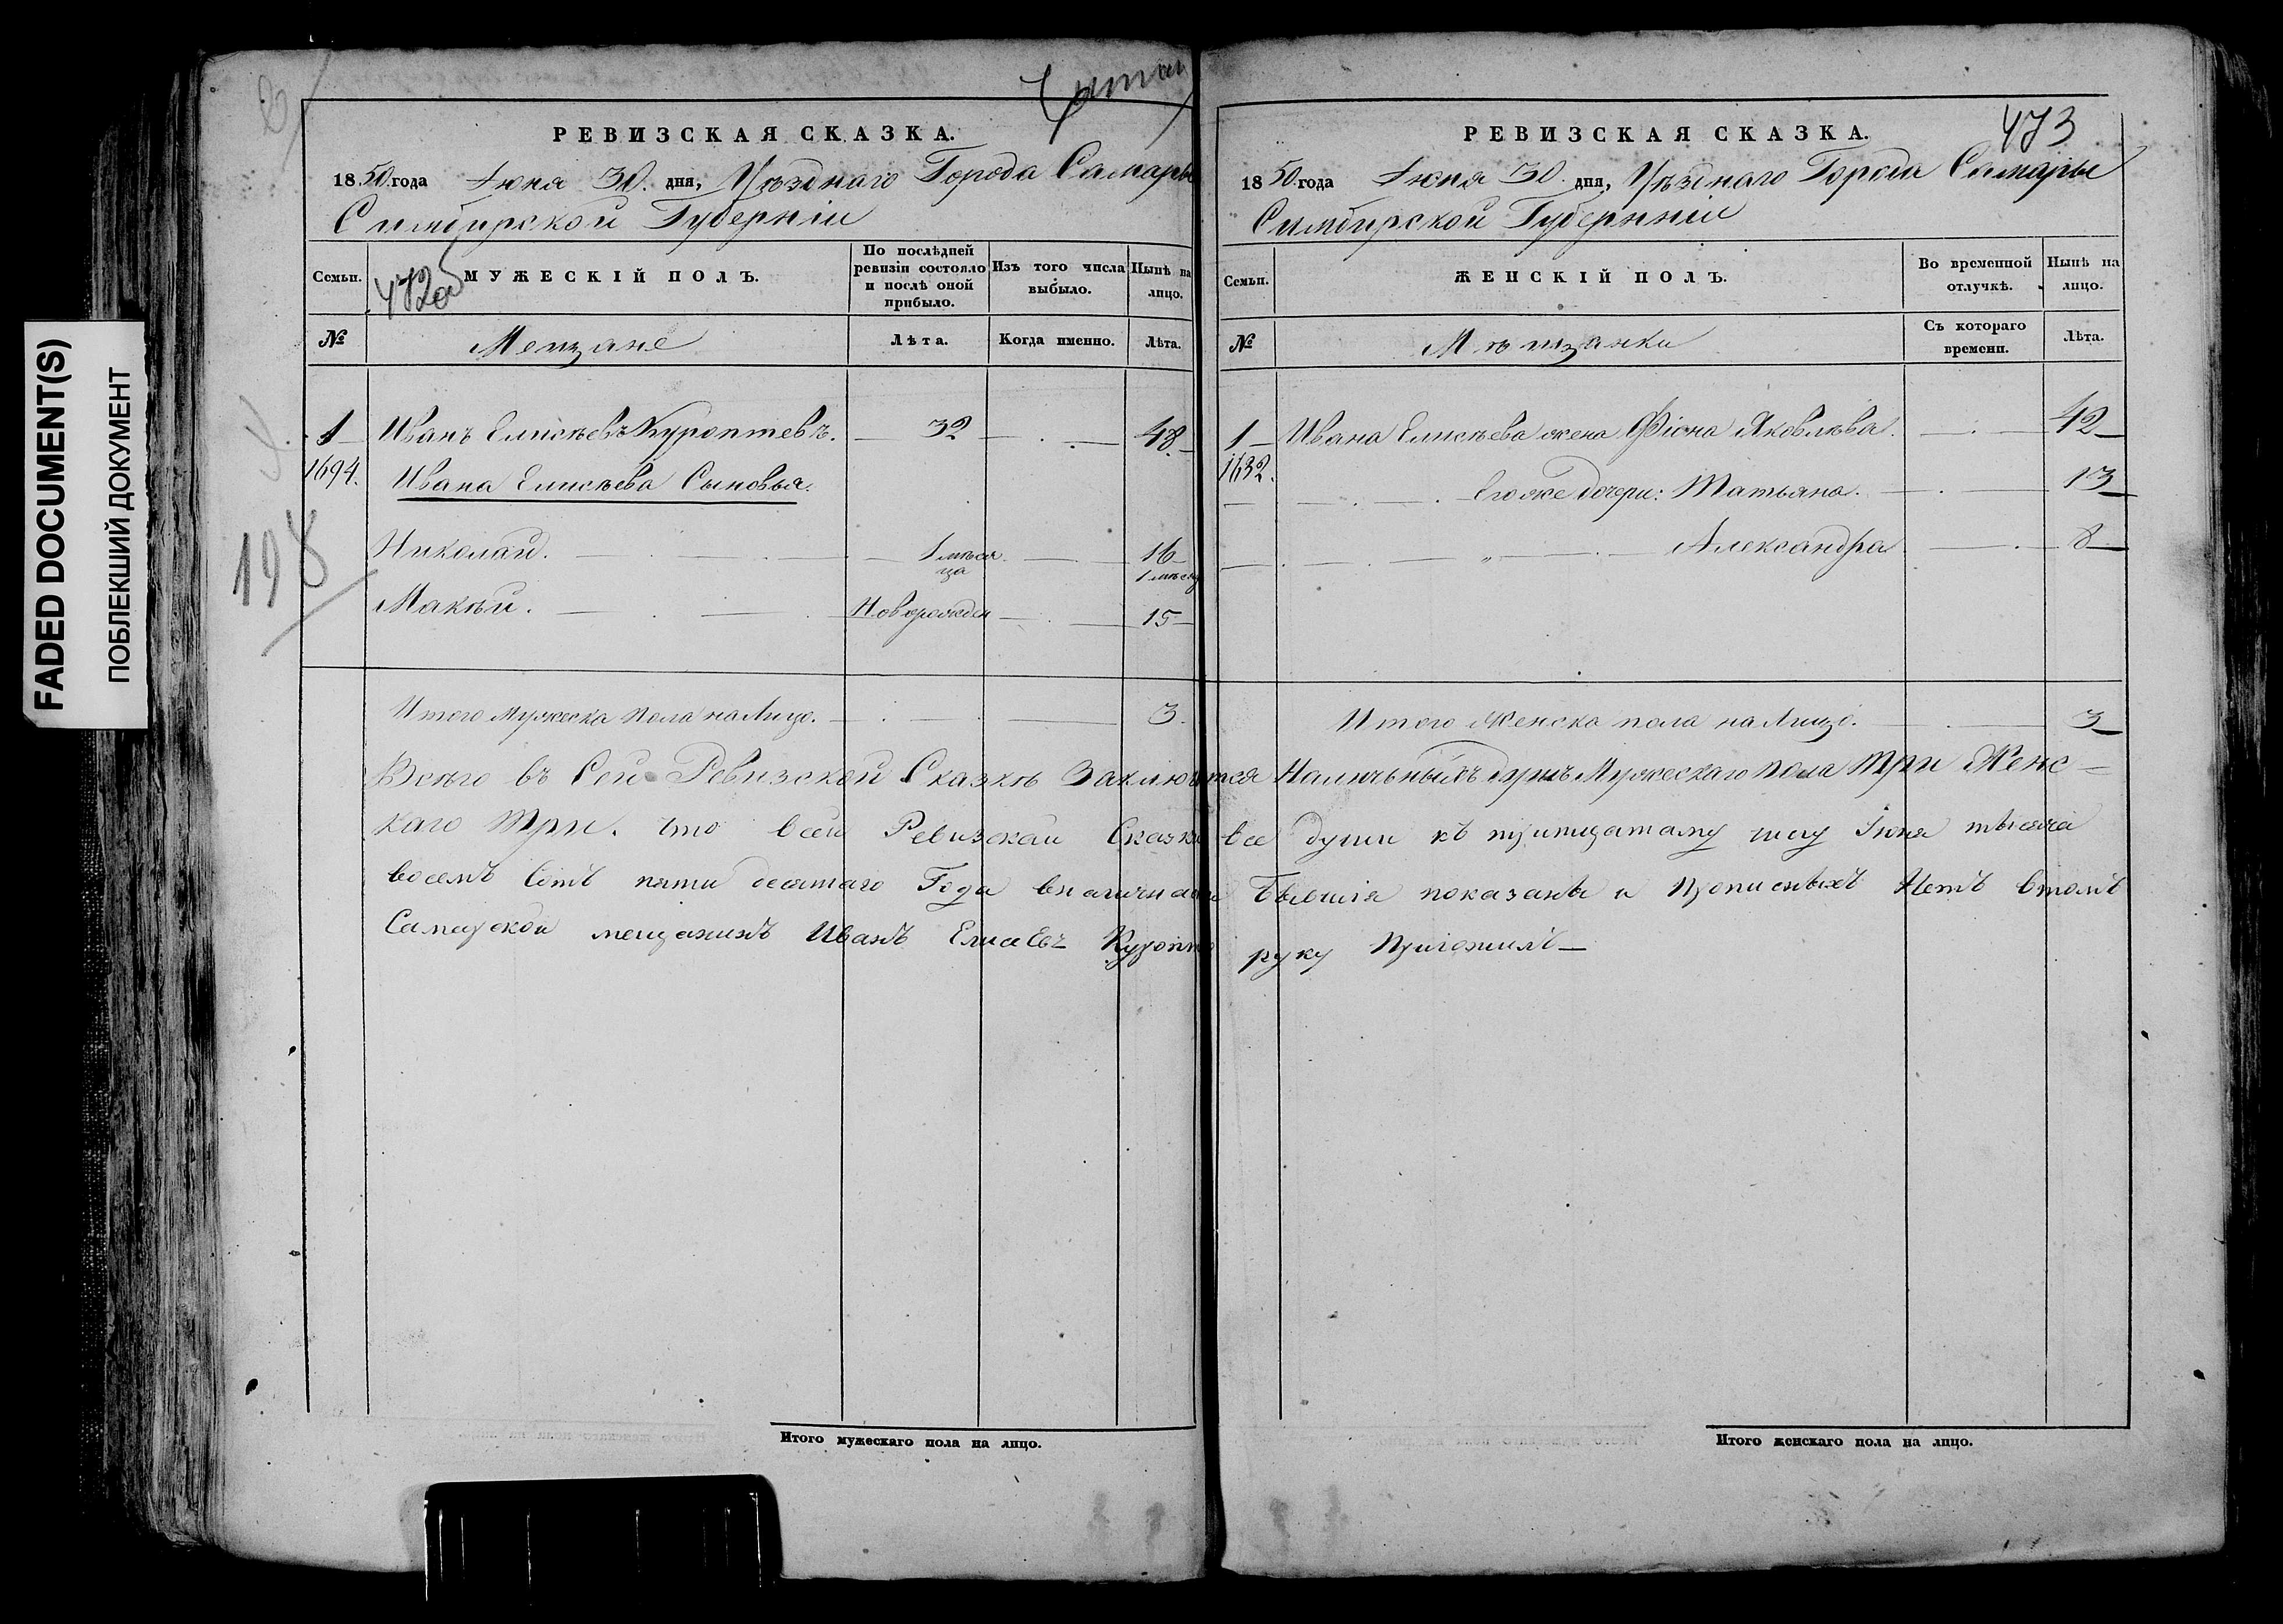 FADED DOCUMENT(S)
ПОБЛЕКШИЙ ДОКУМЕНТ
РЕВИЗСКАЯ СКАЗКА.
1850 года Іюня 30. дня, Уѣзднаго Города Самары
Симбирской Губерніи
Семьи.
МУЖЕСКІЙ ПОЛЪ.
По послѣдней ревизіи состояло и послѣ оной прибыло.
Изъ того числа выбыло.
Нынѣ на лицо.
№
Мещане
Лѣта.
Когда именно.
Лѣта.
1 Иванъ Елисѣевъ Куроптевъ. 32 48
1694. Ивана Елисѣева Сыновья.
Николай. 1 мѣсяца 16
Макѣй. Новорожден 15
Итого Мужеска Пола на Лицо. 3.
198
РЕВИЗСКАЯ СКАЗКА.
473
1850 года Іюня 30. дня, Уѣзднаго Города Самары
Симбирской Губерніи
Семьи.
ЖЕНСКІЙ ПОЛЪ.
Во временной отлучкѣ.
Нынѣ на лицо.
№
Мѣщанки
Съ котораго времени.
Лѣта.
1 Ивана Елисѣева жена Фіона Яковлѣва. 42
1632. Его же дочери: Татьяна. 13
Александра 8
Итого Женска пола на Лицо. 3
Всѣго въ Сей Ревизской Сказкѣ Заключится Наличныхъ душъ Мужескаго пола Три Женс=
каго Три. что всей Ревизской Сказки все души къ тритцатому числу Іюня тысяча
восемъ Сотъ пяти десятаго Года вналичнасти бывшія показаны и Прописныхъ Нетъ втомъ
Самарской мещанинъ Иванъ Елисевъ руку Приложилъ
Итого мужескаго пола на лицо.
Итого женскаго пола на лицо.